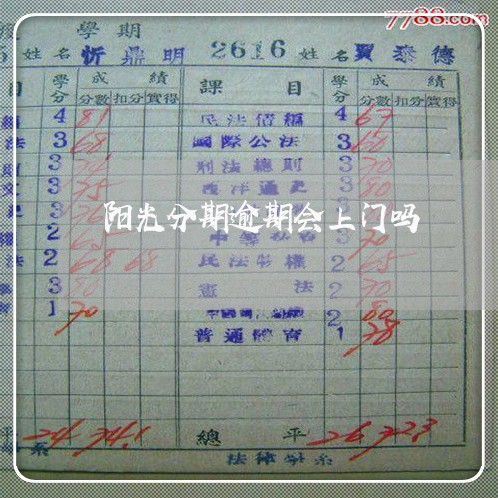 7788.com
學期
姓名 忻鼎明 2616 姓名 賈泰德
目 學分 成績 課目 學分 成績
分數 扣分 實得 分數 扣分 實得
4 81 民法債編 4 67
法 3 68 國際公法 3 60
3 刑法總則 3 70
3 75 西洋通史 3 80
阳光分期逾期会上门吗
2 3 70
法 2 68 68 民法物權 2 65
3 80 憲法 2 70
1 70 2 80
普通體育 1 78
平 24 74.1 總平 26 72.3
系 法律學系